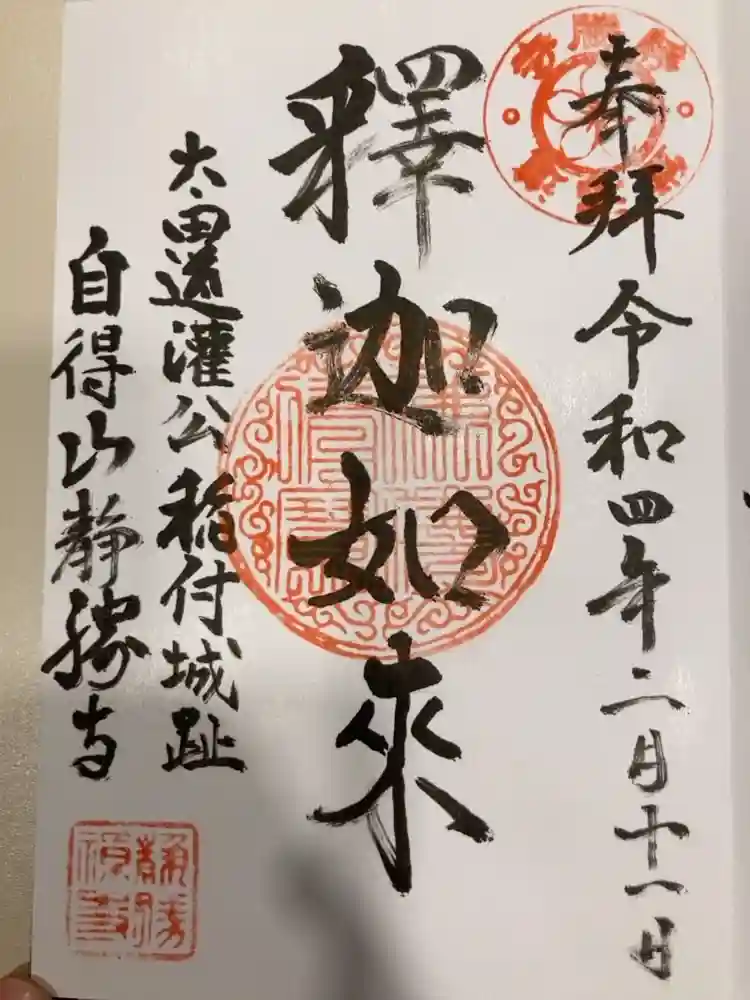 奉拝 令和四年二月十一日
釋迦如來
太田道灌公稲付城趾
自得山静勝寺